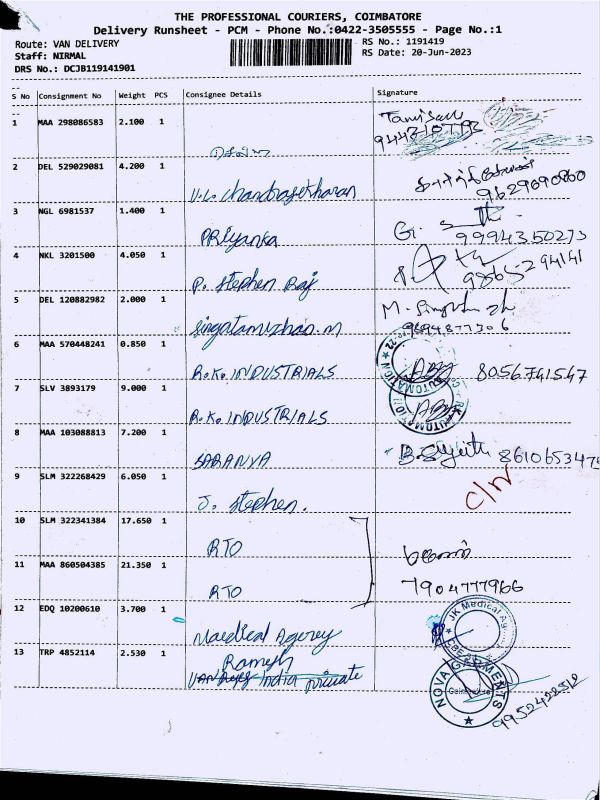 THE PROFESSIONAL COURIERS, COIMBATORE
Delivery Runsheet - PCM - Phone No.:0422-3505555 - Page No.:1
Route: VAN DELIVERY
RS No.: 1191419
Staff: NIRMAL
RS Date: 20-Jun-2023
DRS No.: DCJB119141901
S No Consignment No Weight PCS Consignee Details Signature
1 MAA 298086583 2.100 1
2 DEL 529029081 4.200 1
V.L. Chandrasekharan 9629690860
3 NGL 6981537 1.400 1
PRiyanka 9994350273
4 NKL 3201500 4.050 1
P. Stephen Raj 9865294141
5 DEL 120882982 2.000 1
Singatamizhan.M
6 MAA 570448241 0.850 1
R.K. INDUSTRIALS 8056741547
7 SLV 3893179 9.000 1
R.K. INDUSTRIALS
8 MAA 103088813 7.200 1
SARANYA
9 SLM 322268429 6.050 1
J. Stephen.
10 SLM 322341384 17.650 1
RTO
11 MAA 860504385 21.350 1
RTO 7904777966
12 EDQ 10200610 3.700 1
JK Medical
13 TRP 4852114 2.530 1
Ramesh
India private
NOVA GARMENTS